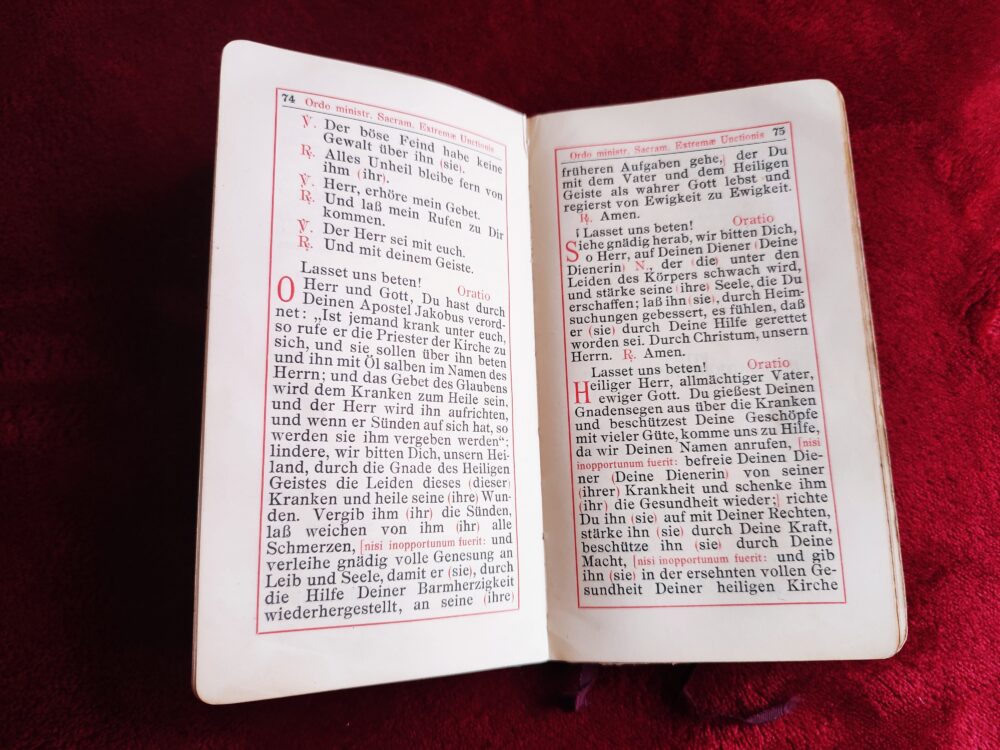 74 Ordo ministr. Sacram. Extremæ Unctionis
℣. Der böse Feind habe keine
Gewalt über ihn (sie).
℟. Alles Unheil bleibe fern von
ihm (ihr).
℣. Herr, erhöre mein Gebet.
℟. Und laß mein Rufen zu Dir
kommen.
℣. Der Herr sei mit euch.
℟. Und mit deinem Geiste.
Lasset uns beten! Oratio
O Herr und Gott, Du hast durch
Deinen Apostel Jakobus verord-
net: „Ist jemand krank unter euch,
so rufe er die Priester der Kirche zu
sich, und sie sollen über ihn beten
und ihn mit Öl salben im Namen des
Herrn; und das Gebet des Glaubens
wird dem Kranken zum Heile sein,
und der Herr wird ihn aufrichten,
und wenn er Sünden auf sich hat, so
werden sie ihm vergeben werden“:
lindere, wir bitten Dich, unsern Hei-
land, durch die Gnade des Heiligen
Geistes die Leiden dieses (dieser)
Kranken und heile seine (ihre) Wun-
den. Vergib ihm (ihr) die Sünden,
laß weichen von ihm (ihr) alle
Schmerzen, [nisi inopportunum fuerit: und
verleihe gnädig volle Genesung an
Leib und Seele, damit er (sie), durch
die Hilfe Deiner Barmherzigkeit
wiederhergestellt, an seine (ihre)
Ordo ministr. Sacram. Extremæ Unctionis 75
früheren Aufgaben gehe,] der Du
mit dem Vater und dem Heiligen
Geiste als wahrer Gott lebst und
regierst von Ewigkeit zu Ewigkeit.
℟. Amen.
Lasset uns beten! Oratio
Siehe gnädig herab, wir bitten Dich,
o Herr, auf Deinen Diener (Deine
Dienerin) N., der (die) unter den
Leiden des Körpers schwach wird,
und stärke seine (ihre) Seele, die Du
erschaffen; laß ihn (sie), durch Heim-
suchungen gebessert, es fühlen, daß
er (sie) durch Deine Hilfe gerettet
worden sei. Durch Christum, unsern
Herrn. ℟. Amen.
Lasset uns beten! Oratio
Heiliger Herr, allmächtiger Vater,
ewiger Gott. Du gießest Deinen
Gnadensegen aus über die Kranken
und beschützest Deine Geschöpfe
mit vieler Güte, komme uns zu Hilfe,
da wir Deinen Namen anrufen, [nisi
inopportunum fuerit: befreie Deinen Die-
ner (Deine Dienerin) von seiner
(ihrer) Krankheit und schenke ihm
(ihr) die Gesundheit wieder;] richte
Du ihn (sie) auf mit Deiner Rechten,
stärke ihn (sie) durch Deine Kraft,
beschütze ihn (sie) durch Deine
Macht, [nisi inopportunum fuerit: und gib
ihn (sie) in der ersehnten vollen Ge-
sundheit Deiner heiligen Kirche